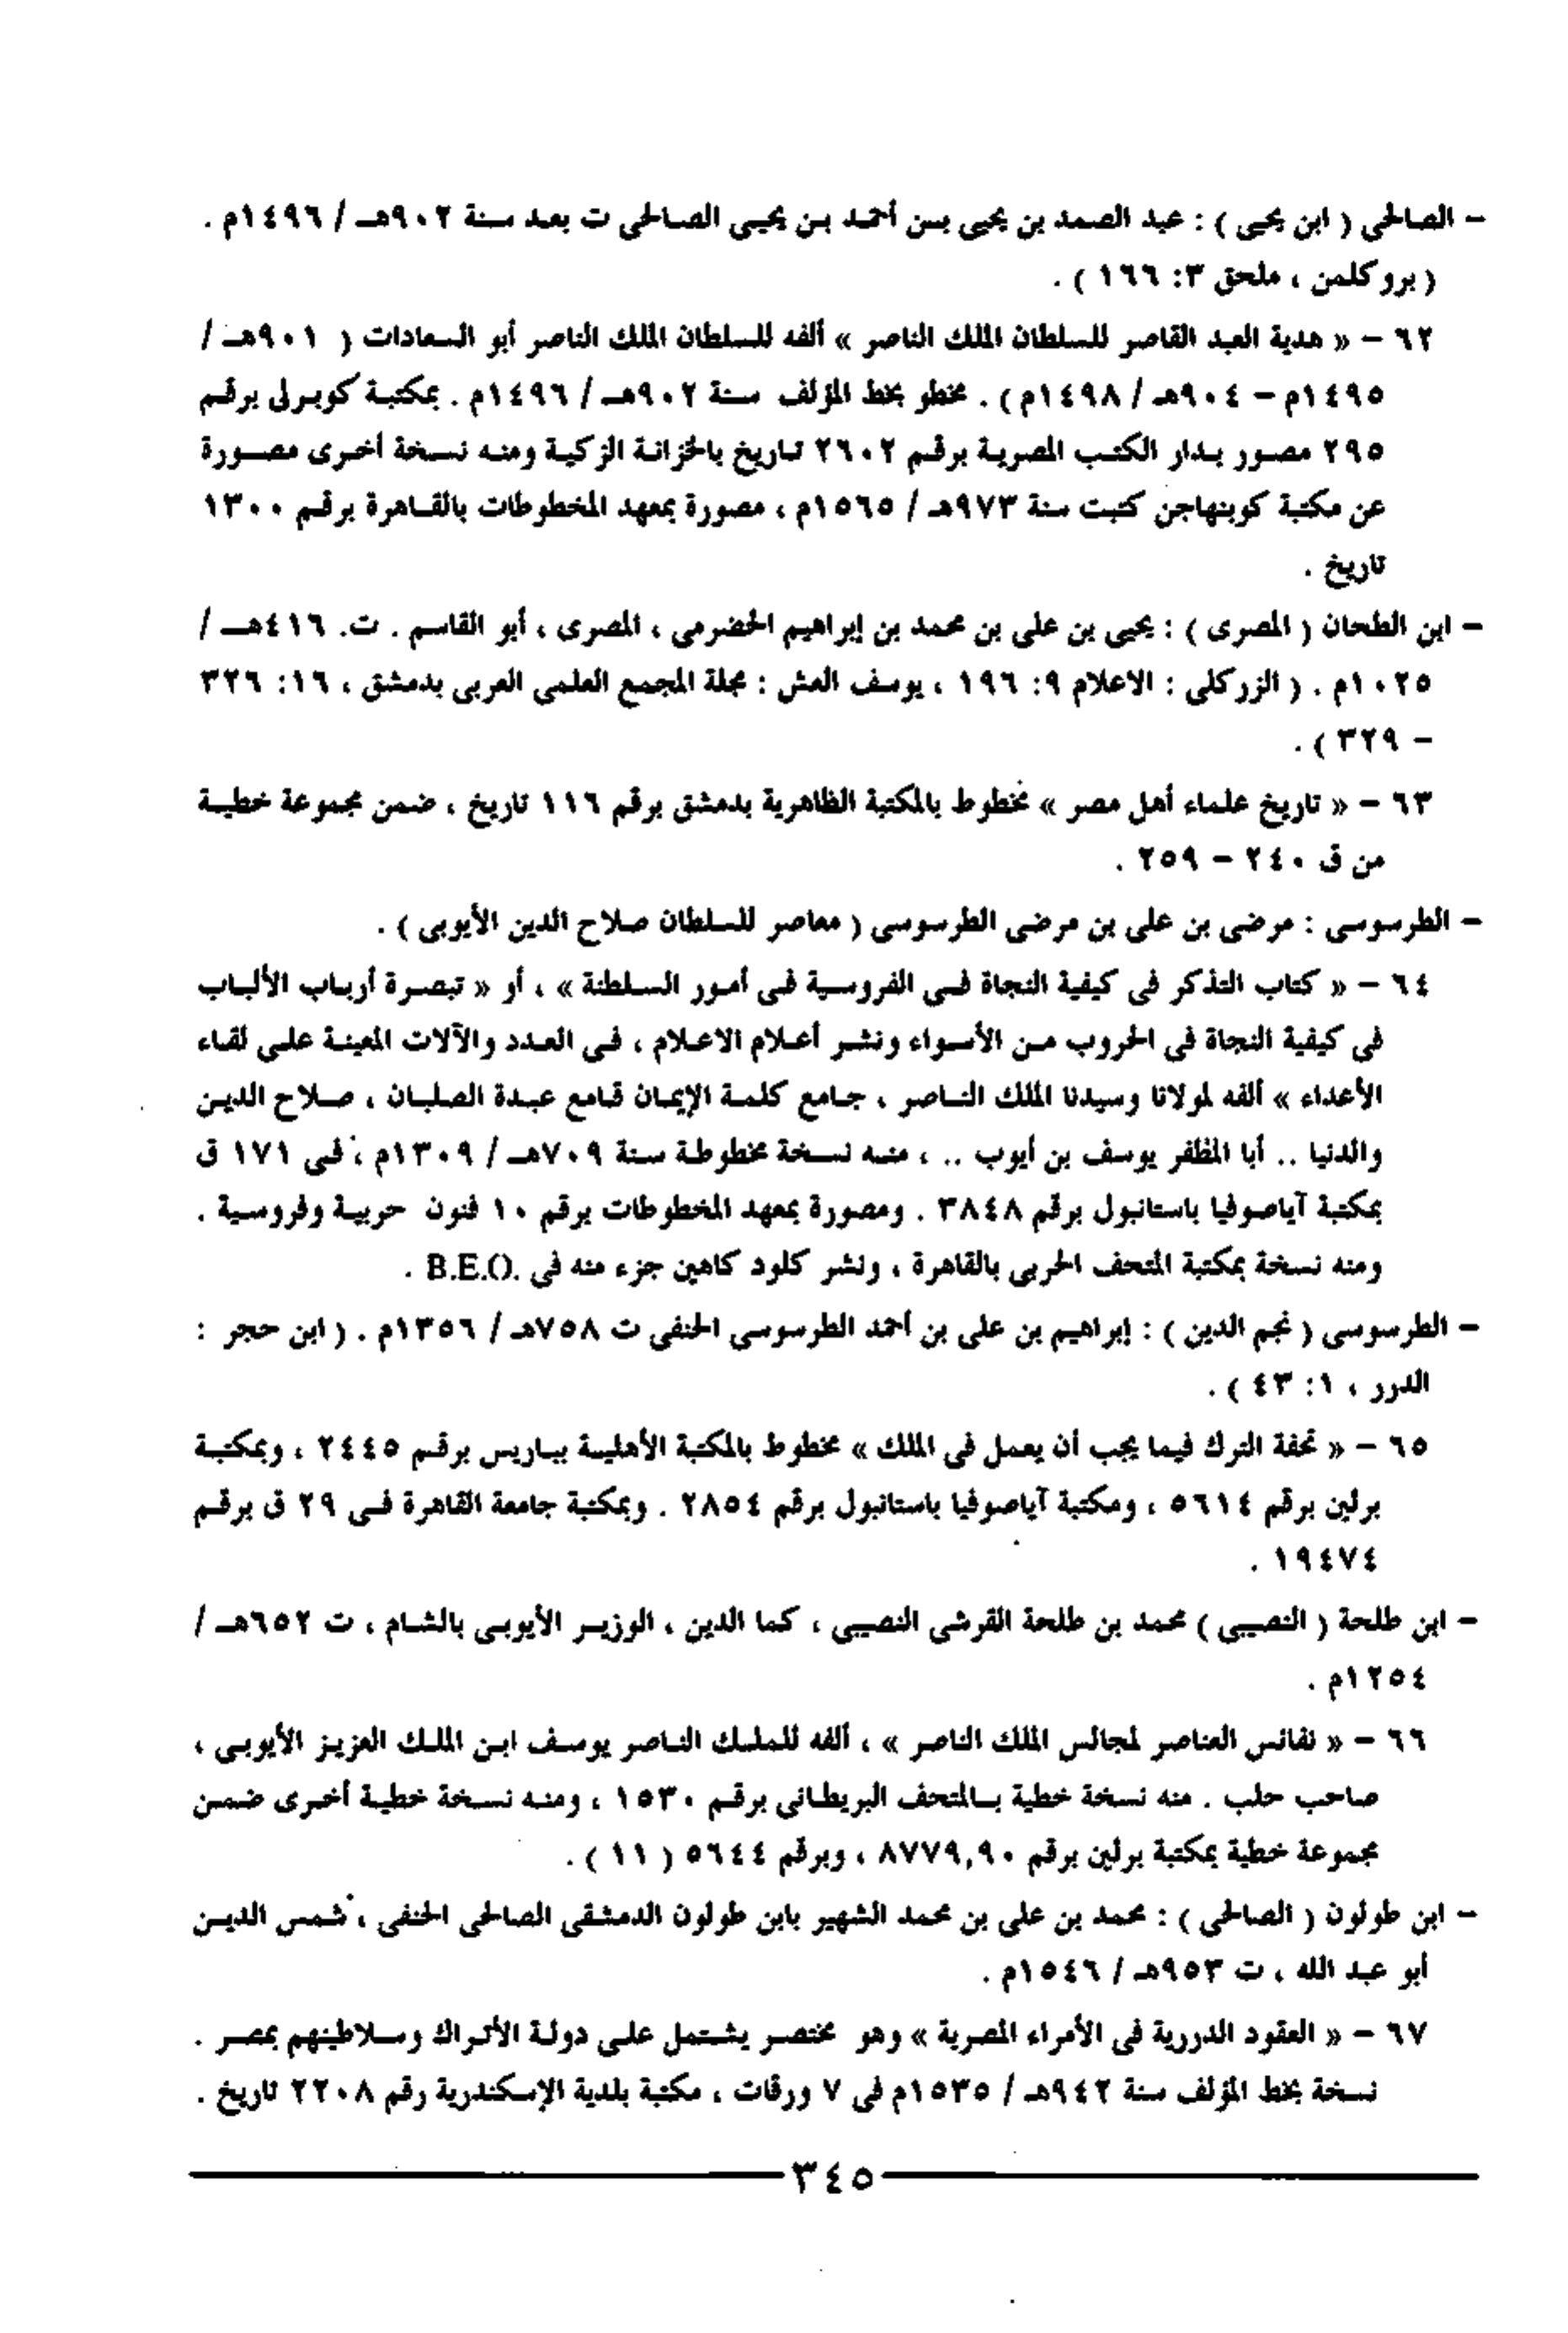 - الصالحى ( ابن يحيى ) : عبد الصمد بن يحيى بسن أحمد بن يحيى الصالحى ت بعد سنة ٩٠٢هـ / ١٤٩٦م .
( بروكلمن ، ملحق ٣: ١٦٦ ) .
٦٢ - « هدية العبد القاصر للسلطان الملك الناصر » ألفه للسلطان الملك الناصر أبو السعادات ( ٩٠١هـ /
١٤٩٥م - ٩٠٤هـ / ١٤٩٨م ) . مخطو بخط المؤلف سنة ٩٠٢هـ / ١٤٩٦م . بمكتبة كوبرلى برقم
٢٩٥ مصور بدار الكتب المصرية برقم ٢٦٠٢ تاريخ بالخزانة الزكية ومنه نسخة أخرى مصورة
عن مكتبة كوبنهاجن كتبت سنة ٩٧٣هـ / ١٥٦٥م ، مصورة بمعهد المخطوطات بالقاهرة برقم ١٣٠٠
تاريخ .
- ابن الطحان ( المصرى ) : يحيى بن على بن محمد بن إبراهيم الحضرمى ، المصرى ، أبو القاسم . ت. ٤١٦هـ /
١٠٢٥م . ( الزركلى : الاعلام ٩: ١٩٦ ، يوسف العش : مجلة المجمع العلمى العربى بدمشق ، ١٦: ٣٢٦
- ٣٢٩ ) .
٦٣ - « تاريخ علماء أهل مصر » مخطوط بالمكتبة الظاهرية بدمشق برقم ١١٦ تاريخ ، ضمن مجموعة خطية
من ق ٢٤٠ - ٢٥٩ .
- الطرسوسى : مرضى بن على بن مرضى الطرسوسى ( معاصر للسلطان صلاح الدين الأيوبى ) .
٦٤ - « كتاب التذكر فى كيفية النجاة فى الفروسية فى أمور السلطنة » ، أو « تبصرة أرباب الألباب
فى كيفية النجاة فى الحروب من الأسواء ونشر أعلام الاعلام ، فى العدد والآلات المعينة على لقاء
الأعداء » ألفه لمولانا وسيدنا الملك الناصر ، جامع كلمة الإيمان قامع عبدة الصلبان ، صلاح الدين
والدنيا .. أبا المظفر يوسف بن أيوب .. ، منه نسخة مخطوطة سنة ٧٠٩هـ / ١٣٠٩م ، فى ١٧١ ق
بمكتبة آياصوفيا باستانبول برقم ٣٨٤٨ . ومصورة بمعهد المخطوطات برقم ١٠ فنون حربية وفروسية .
ومنه نسخة بمكتبة المتحف الحربى بالقاهرة ، ونشر كلود كاهين جزء منه فى B.E.O. .
- الطرسوسى ( نجم الدين ) : إبراهيم بن على بن أحمد الطرسوسى الحنفى ت ٧٥٨هـ / ١٣٥٦م . ( ابن حجر :
الدرر ، ١: ٤٣ ) .
٦٥ - « تحفة الترك فيما يجب أن يعمل فى الملك » مخطوط بالمكتبة الأهلية بباريس برقم ٢٤٤٥ ، وبمكتبة
برلين برقم ٥٦١٤ ، ومكتبة آياصوفيا باستانبول برقم ٢٨٥٤ . وبمكتبة جامعة القاهرة فى ٢٩ ق برقم
١٩٤٧٤ .
- ابن طلحة ( النصيبى ) محمد بن طلحة القرشى النصيبى ، كما الدين ، الوزير الأيوبى بالشام ، ت ٦٥٢هـ /
١٢٥٤م .
٦٦ - « نفائس العناصر لمجالس الملك الناصر » ، ألفه للملك الناصر يوسف ابن الملك العزيز الأيوبى ،
صاحب حلب . منه نسخة خطية بالمتحف البريطانى برقم ١٥٣٠ ، ومنه نسخة خطية أخرى ضمن
مجموعة خطية بمكتبة برلين برقم ٨٧٧٩,٩٠ ، وبرقم ٥٦٤٤ ( ١١ ) .
- ابن طولون ( الصالحى ) : محمد بن على بن محمد الشهير بابن طولون الدمشقى الصالحى الحنفى ، شمس الدين
أبو عبد الله ، ت ٩٥٣هـ / ١٥٤٦م .
٦٧ - « العقود الدررية فى الأمراء المصرية » وهو مختصر يشتمل على دولة الأتراك وسلاطينهم بمصر .
نسخة بخط المؤلف سنة ٩٤٢هـ / ١٥٣٥م فى ٧ ورقات ، مكتبة بلدية الإسكندرية رقم ٢٢٠٨ تاريخ .
٣٤٥